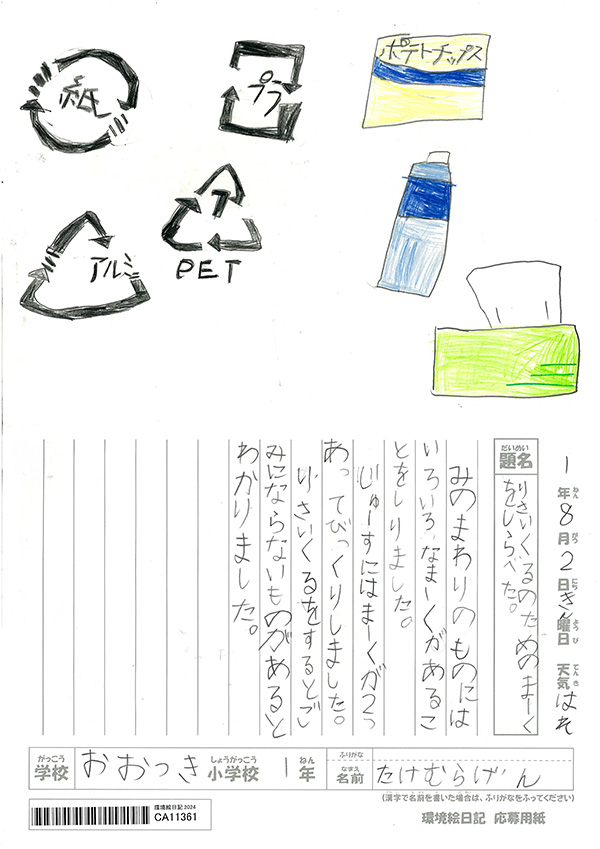 紙
プラ
ポテトチップス
アルミ
PET
1年8月2日きん曜日 天気はれ
ねん がつ にち ようび てんき
だいめい
題名
りさいくるのためのまーく
をしらべた。
みのまわりのものには
いろいろなまーくがあるこ
とをしりました。
じゅーすにはまーくが2つ
あってびっくりしました。
りさいくるをするとご
みにならないものがあると
わかりました。
がっこう しょうがっこう ねん
学校 おおつき 小学校 1年
ふりがな
なまえ
名前 たけむらげん
(漢字で名前を書いた場合は、ふりがなをふってください)
環境絵日記 2024
CA11361
環境絵日記 応募用紙